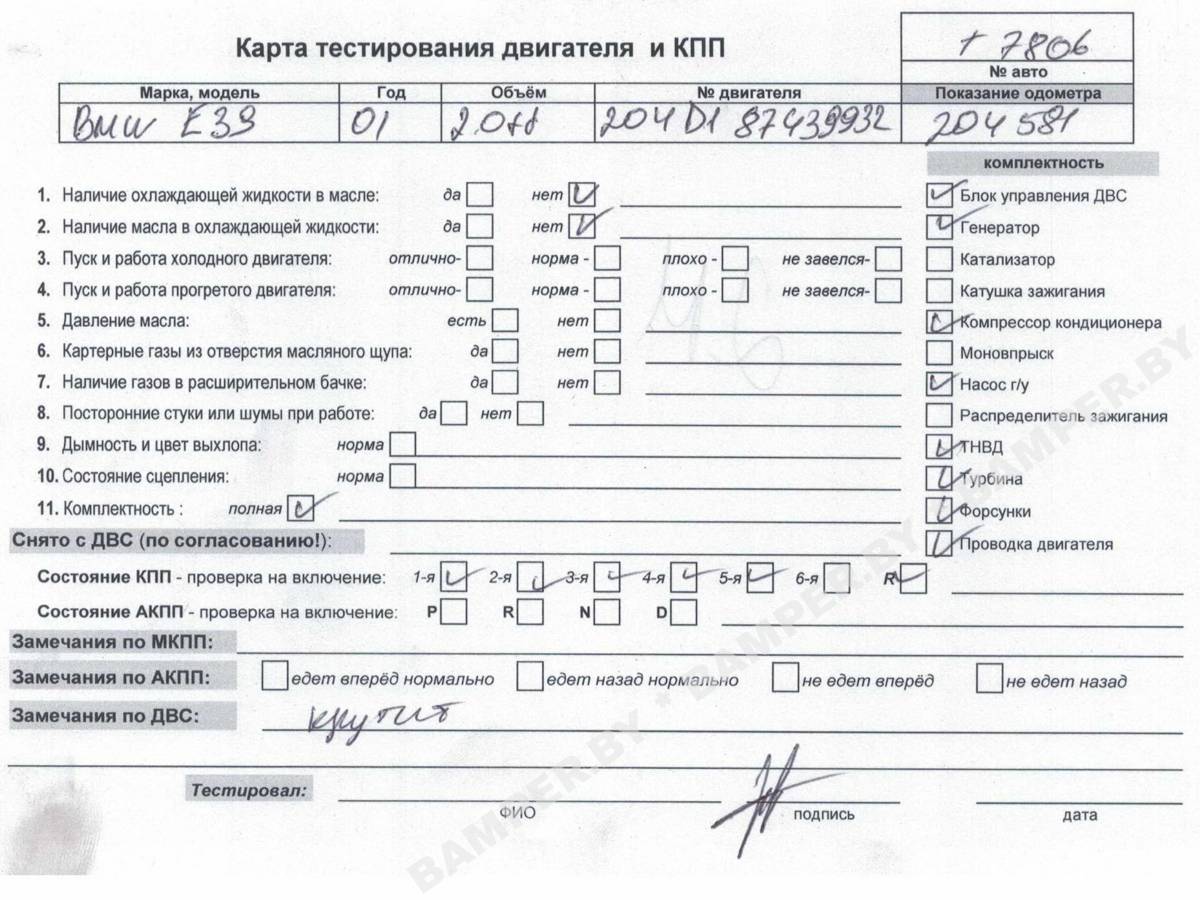 Карта тестирования двигателя и КПП
+ 7806
№ авто
Марка, модель Год Объём № двигателя Показание одометра
BMW E39 01 2.0td 204D1 87439932 204 581
комплектность
1. Наличие охлаждающей жидкости в масле: да нет Блок управления ДВС
2. Наличие масла в охлаждающей жидкости: да нет Генератор
3. Пуск и работа холодного двигателя: отлично- норма - плохо - не завелся- Катализатор
4. Пуск и работа прогретого двигателя: отлично- норма - плохо - не завелся- Катушка зажигания
5. Давление масла: есть нет Компрессор кондиционера
6. Картерные газы из отверстия масляного щупа: да нет Моновпрыск
7. Наличие газов в расширительном бачке: да нет Насос г/у
8. Посторонние стуки или шумы при работе: да нет Распределитель зажигания
9. Дымность и цвет выхлопа: норма ТНВД
10. Состояние сцепления: норма Турбина
11. Комплектность : полная Форсунки
Снято с ДВС (по согласованию!): Проводка двигателя
Состояние КПП - проверка на включение: 1-я 2-я 3-я 4-я 5-я 6-я R
Состояние АКПП - проверка на включение: P R N D
Замечания по МКПП:
Замечания по АКПП: едет вперёд нормально едет назад нормально не едет вперёд не едет назад
Замечания по ДВС: крутит
Тестировал:
ФИО подпись дата
BAMPER.BY * BAMPER.BY * BAMPER.BY